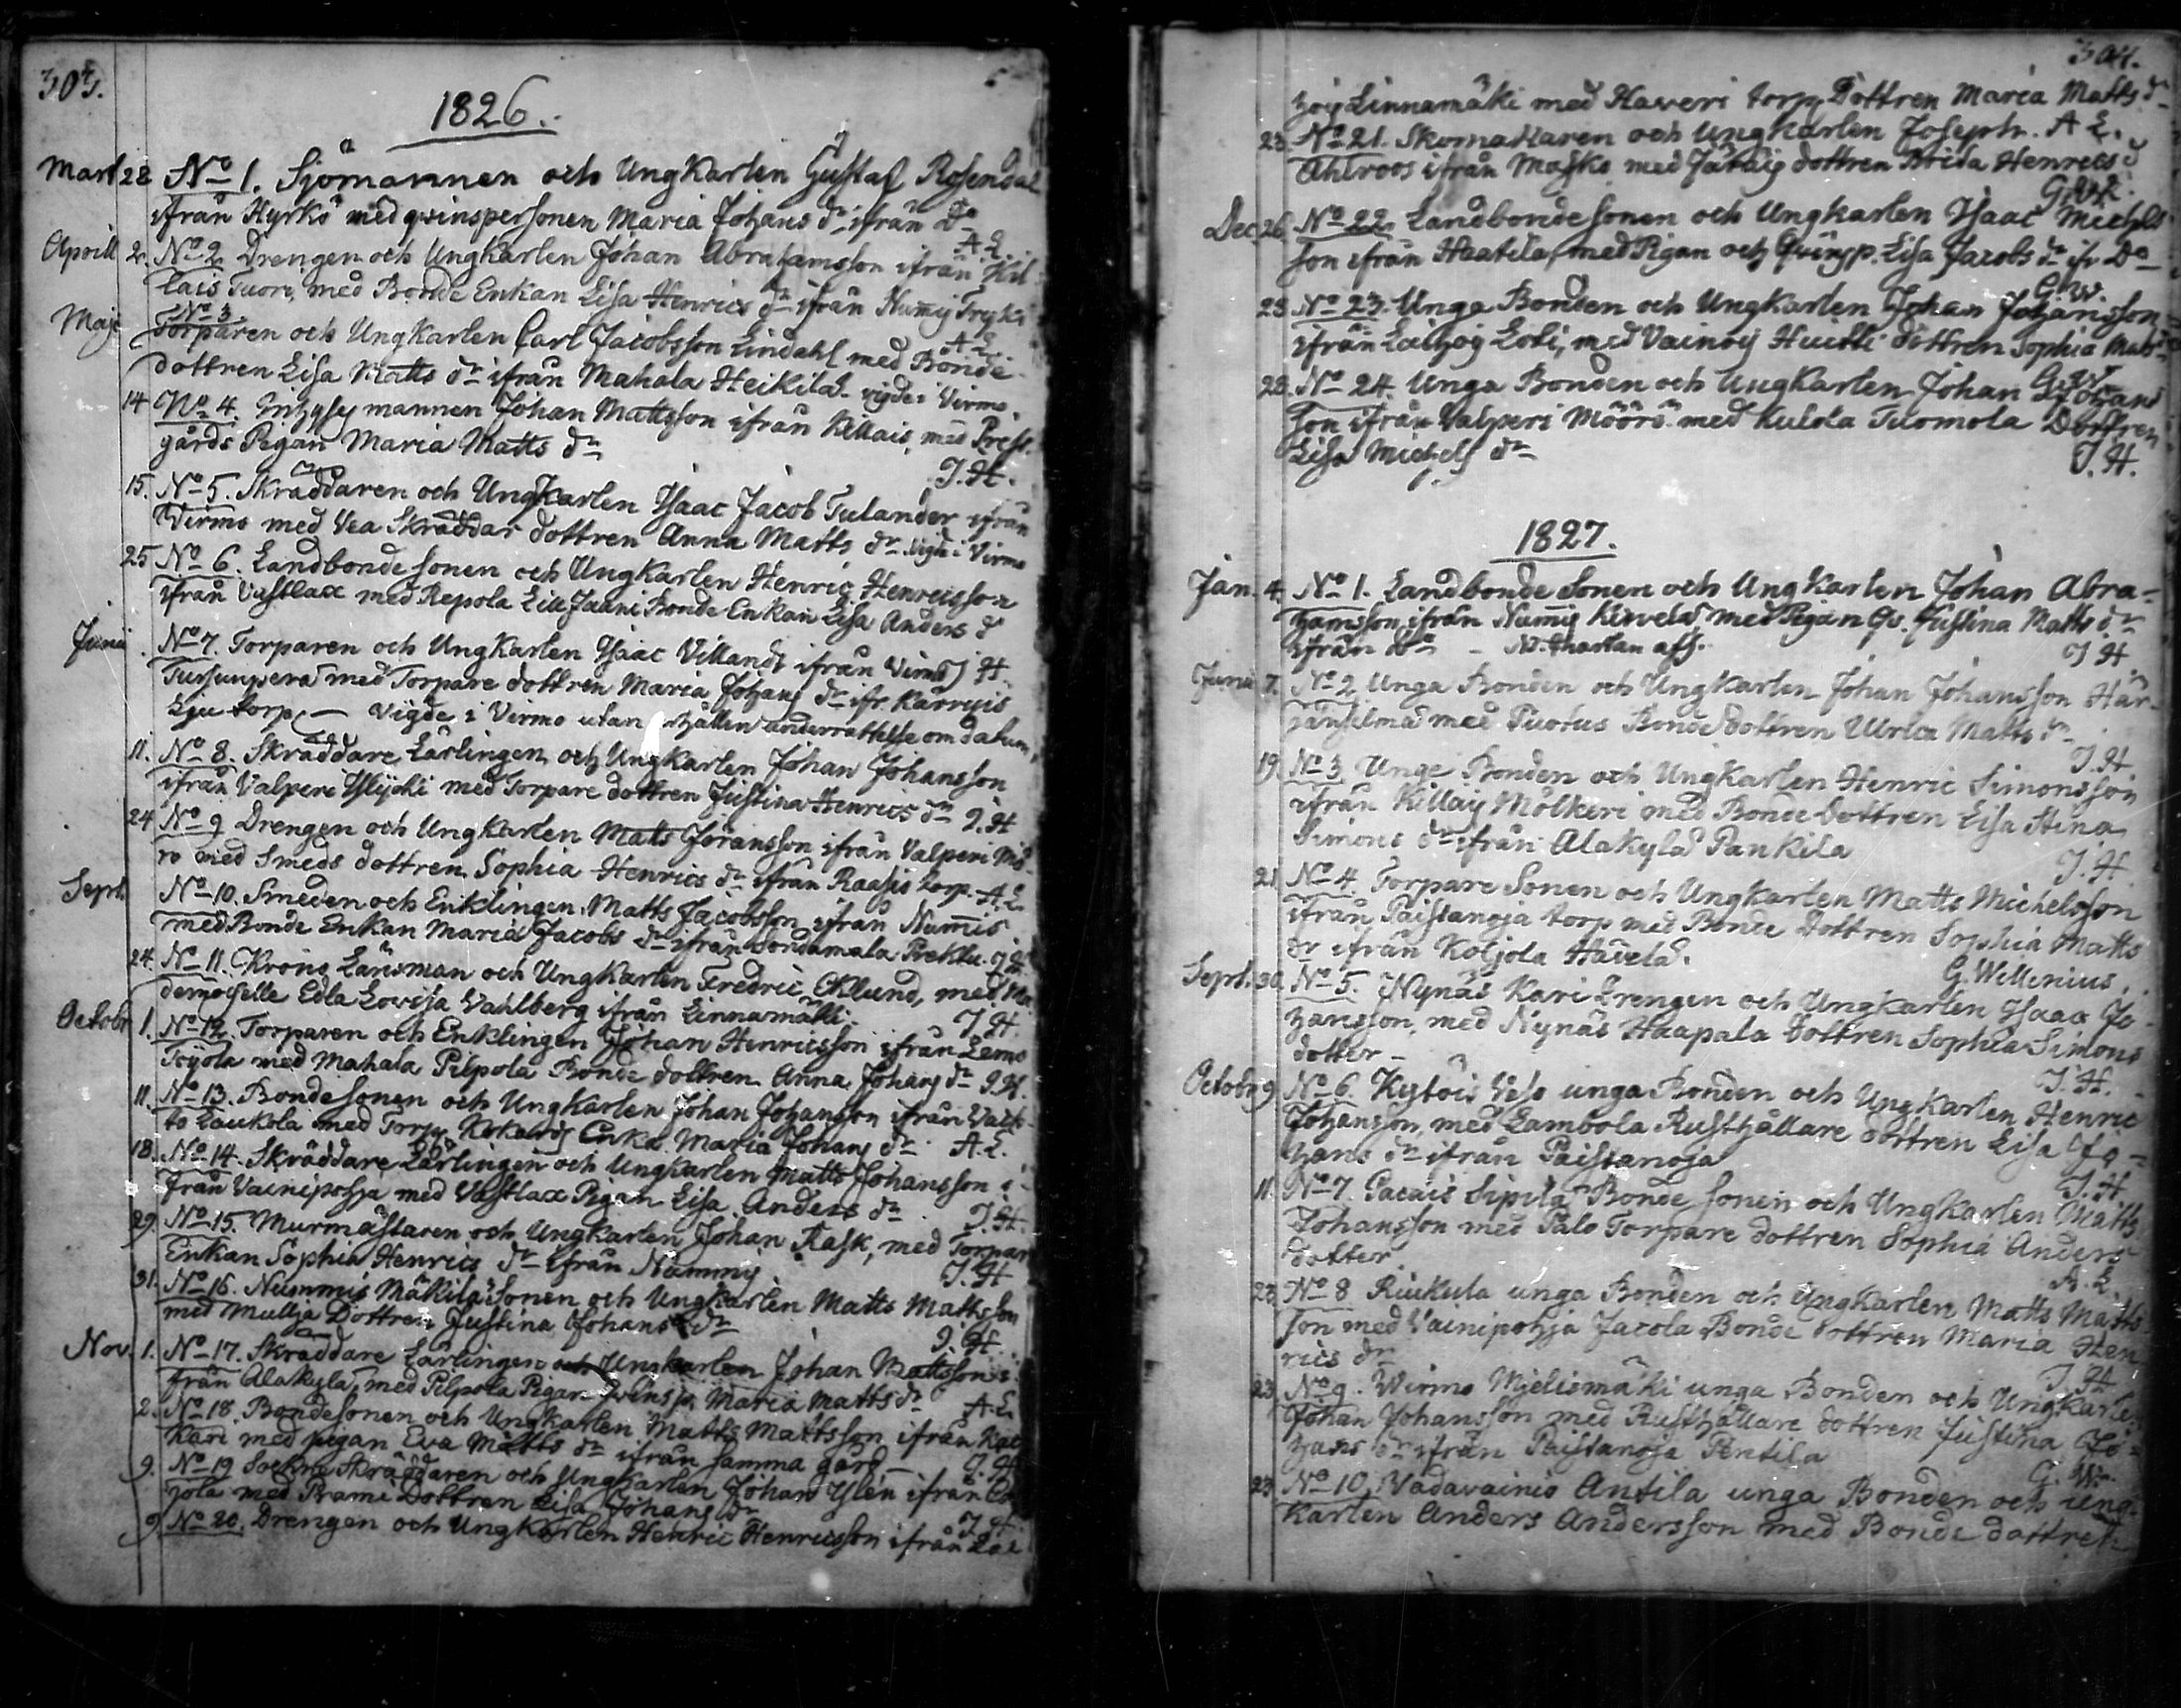 303.
1826.
Mart 28 No 1. Sjömannen och Ungkarlen Gustaf Rosendal
ifrån Kyrkö med qvinspersonen Maria Johans dr ifrån Do
A L.
Aprill 2. No 2 Drengen och Ungkarlen Johan Abrahamsson ifrån Kil
lais Tuori, med Bonde Enkan Lisa Henrics dr ifrån Numis
A L.
Maji No 3 Torparen och Ungkarlen Carl Jacobsson Lindahl med Bonde
dottren Lisa Matts dr ifrån Mahala Heikilä. vigde i Virmo.
14 No 4. Inhyses mannen Johan Mattsson ifrån Killais, med Prest
gårds Pigan Maria Matts dr
J. H.
15. No 5. Skräddaren och Ungkarlen Isaac Jacob Tulander ifrån
Virmo med Vea Skräddar dottren Anna Matts dr Vigde i Virmo
25 No 6. Landbonde sonen och Ungkarlen Henric Henricsson
ifrån Vastlax med Repola Lill Jaani Bonde Enkan Lisa Anders d
Junii. No 7. Torparen och Ungkarlen Isaac Villands ifrån Virmo J H.
med Torpare dottren Maria Johans dr ifr Karvvis
torp, — vigde i Virmo utan erhållen underrättelse om datum.
11. No 8. Skräddare Lärlingen och Ungkarlen Johan Johansson
ifrån Valperi Ylijoki med Torpare dottren Justina Henrics dr J. H
24 No 9 Drengen och Ungkarlen Mats Göransson ifrån Valperi Mö
rö med Smeds dottren Sophia Henrics dr ifrån Raasis torp. A L
Sept. No 10. Smeden och Enklingen Matts Jacobsson ifrån Numis
med Bonde Enkan Maria Jacobs dr ifrån
24. No 11. Krono Länsman och Ungkarlen Fredric Oklund, med Ma
demoiselle Edla Lovisa Vahlberg ifrån Linnamäki.
J. H.
Octobr 1. No 12. Torparen och Enklingen Johan Henricsson ifrån Lemo
Toijola med Mahala Pilpola Bonde dottren Anna Johans dr J. H.
11. No 13. Bondesonen och Ungkarlen Johan Johansson ifrån Valt
to Laukola med Torp. Enka Maria Johans dr A. L.
18. No 14. Skräddare Lärlingen och Ungkarlen Matts Johansson i-
från Vainipohja med Vastlax Pigan Lisa Anders dr J. H.
29. No 15. Murmästaren och Ungkarlen Johan Rask, med Torpar
Enkan Sophia Henrics dr ifrån Nummis
J. H
31. No 16. Nummis Mäkilä Sonen och Ungkarlen Matts Mattsson
med Mullja Dottren Justina Johans dr
J. H
Nov. 1. No 17. Skräddare Lärlingen och Ungkarlen Johan Mattsson i-
från Alakyla, med Pilpola Pigan Maria Matts dr A. L
2. No 18. Bondesonen och Ungkarlen Matts Mattsson ifrån
Kari med pigan Eva Matts dr ifrån samma gård J. H
9. No 19 Sockne Skräddaren och Ungkarlen Johan Ylén ifrån
jola med Prami Dottren Lisa Johans dr
J. H.
9 No 20. Drengen och Ungkarlen Henric Henricsson ifrån Lai
304.
hois Linnamäki med Haveri torp. Dottren Maria Matts dr
A L.
23. No 21. Skomakaren och Ungkarlen Joseph
Ahlroos ifrån Masko med dottren Brita Henrics d
G. W.
Dec. 26. No 22. Landbonde sonen och Ungkarlen Isaac Michels
son ifrån Haatila, med Pigan och Qvinsp. Lisa Jacobs dr ifr Do
G. W.
28 No 23. Unga Bonden och Ungkarlen Johan Johansson
ifrån Laihois med Vainois Huitti dottren Sophia Mats dr
G. W.
28. No 24. Unga Bonden och Ungkarlen Johan Johans
son ifrån Valperi Möörö med Kulola Tuomola Dottren
Lisa Michels dr
J. H.
1827.
Jan. 4. No 1. Landbonde Sonen och Ungkarlen Johan Abra-
hamsson ifrån Numis Kirvelä, med Pigan Qv. Justina Matts dr
ifrån do
J H
Junii 7. No 2 Unga Bonden och Ungkarlen Johan Johansson Här-
jänsilmä med Tuorus Bonde dottren Ulrica Matts dr
J. H
19 No 3 Unge Bonden och Ungkarlen Henric Simonsson
ifrån Killais Mölkeri med Bonde dottren Lisa Stina
Simons dr ifrån Alakylä Pankila
J. H.
21 No 4. Torpare Sonen och Ungkarlen Matts Michelsson
ifrån Paistanoja torp med Bonde Dottren Sophia Matts
dr ifrån Koljola Hävelä.
G. Wellenius.
Sept. 30. No 5. Nynäs Kari Drengen och Ungkarlen Isaac Jo-
hansson, med Nynäs Haapala dottren Sophia Simons
dotter –
J. H.
Octobr 9 No 6. Kystöis Veso unga Bonden och Ungkarlen Henric
Johansson, med Lambola Rusthållare dottren Lisa Jo-
hans dr ifrån Paistanoja
J. H
11. No 7. Pacais Sipilä Bonde sonen och Ungkarlen Matts
Johansson med Palo Torpare dottren Sophia Anders
dotter
A. L.
23 No 8 Riukula unga Bonden och Ungkarlen Matts Matts
son med Vainipohja Jacola Bonde dottren Maria Hen
rics dr
J. H
23 No 9. Wirmo Mjelismäki unga Bonden och Ungkarle.
Johan Johansson med Rusthållare dottren Justina Jo-
hans dr ifrån Paistanoja Pentila
G. W.
23 No 10. Vadavainio Antila unga Bonden och Ung
karlen Anders Andersson med Bonde dottren